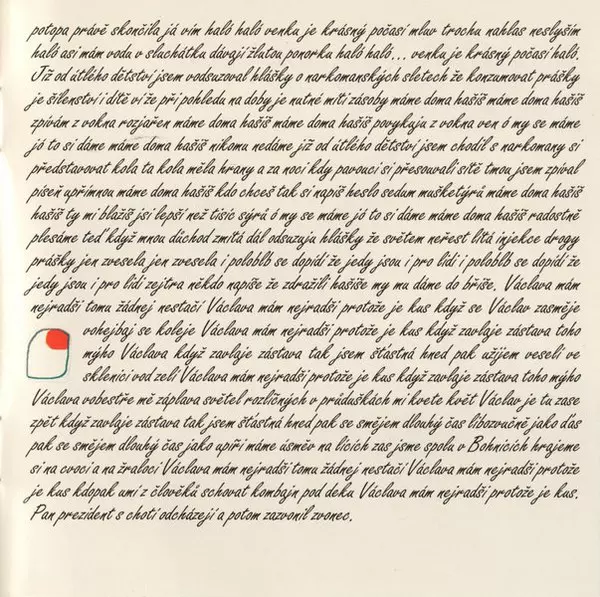 potopa právě skončila já vím haló haló venku je krásný počasí mluv trochu nahlas neslyším
haló asi mám vodu v sluchátku dávají žlutou ponorku haló haló... venku je krásný počasí haló.
Již od útlého dětství jsem vodsuzoval hlášky o narkomanských sletech že konzumovat prášky
je šílenství i dítě ví že při pohledu na doby je nutné míti zásoby máme doma hašiš máme doma hašiš
zpívám z vokna rozjařen máme doma hašiš máme doma hašiš povykuju z vokna ven ó my se máme
jó to si dáme máme doma hašiš nikomu nedáme již od útlého dětství jsem chodil s narkomany si
představovat kola ta kola měla hrany a za noci kdy pavouci si přesouvali sítě tmou jsem zpíval
píseň upřímnou máme doma hašiš kdo chceš tak si napiš heslo sedum mušketýrů máme doma hašiš
hašiš ty mi blažíš jsi lepší než tisíc sýrů ó my se máme jó to si dáme máme doma hašiš radostně
plesáme teď když mnou důchod zmítá dál odsuzuju hlášky že světem neřest lítá injekce drogy
prášky jen zvesela jen zvesela i poloblb se dopídí že jedy jsou i pro lidi i poloblb se dopídí že
jedy jsou i pro lidi zejtra někdo napíše že zdražili hašiše my mu dáme do břiše. Václava mám
nejradši tomu žádnej nestačí Václava mám nejradši protože je kus když se Václav zasměje
vohejbaj se koleje Václava mám nejradši protože je kus když zavlaje zástava toho
mýho Václava když zavlaje zástava tak jsem šťastná hned pak užijem veselí ve
sklenici vod zelí Václava mám nejradši protože je kus když zavlaje zástava toho mýho
Václava vobestře mě záplava světel rozličných v průduškách mi kvete květ Václav je tu zase
zpět když zavlaje zástava tak jsem šťastná hned pak se smějem dlouhý čas libozvučně jako ďas
pak se smějem dlouhý čas jako upíři máme úsměv na lících zas jsme spolu v Bohnicích hrajeme
si na cvoci a na žraloci Václava mám nejradši tomu žádnej nestačí Václava mám nejradši protože
je kus kdopak umí z člověků schovat kombajn pod deku Václava mám nejradši protože je kus.
Pan prezident s chotí odcházejí a potom zazvonil zvonec.